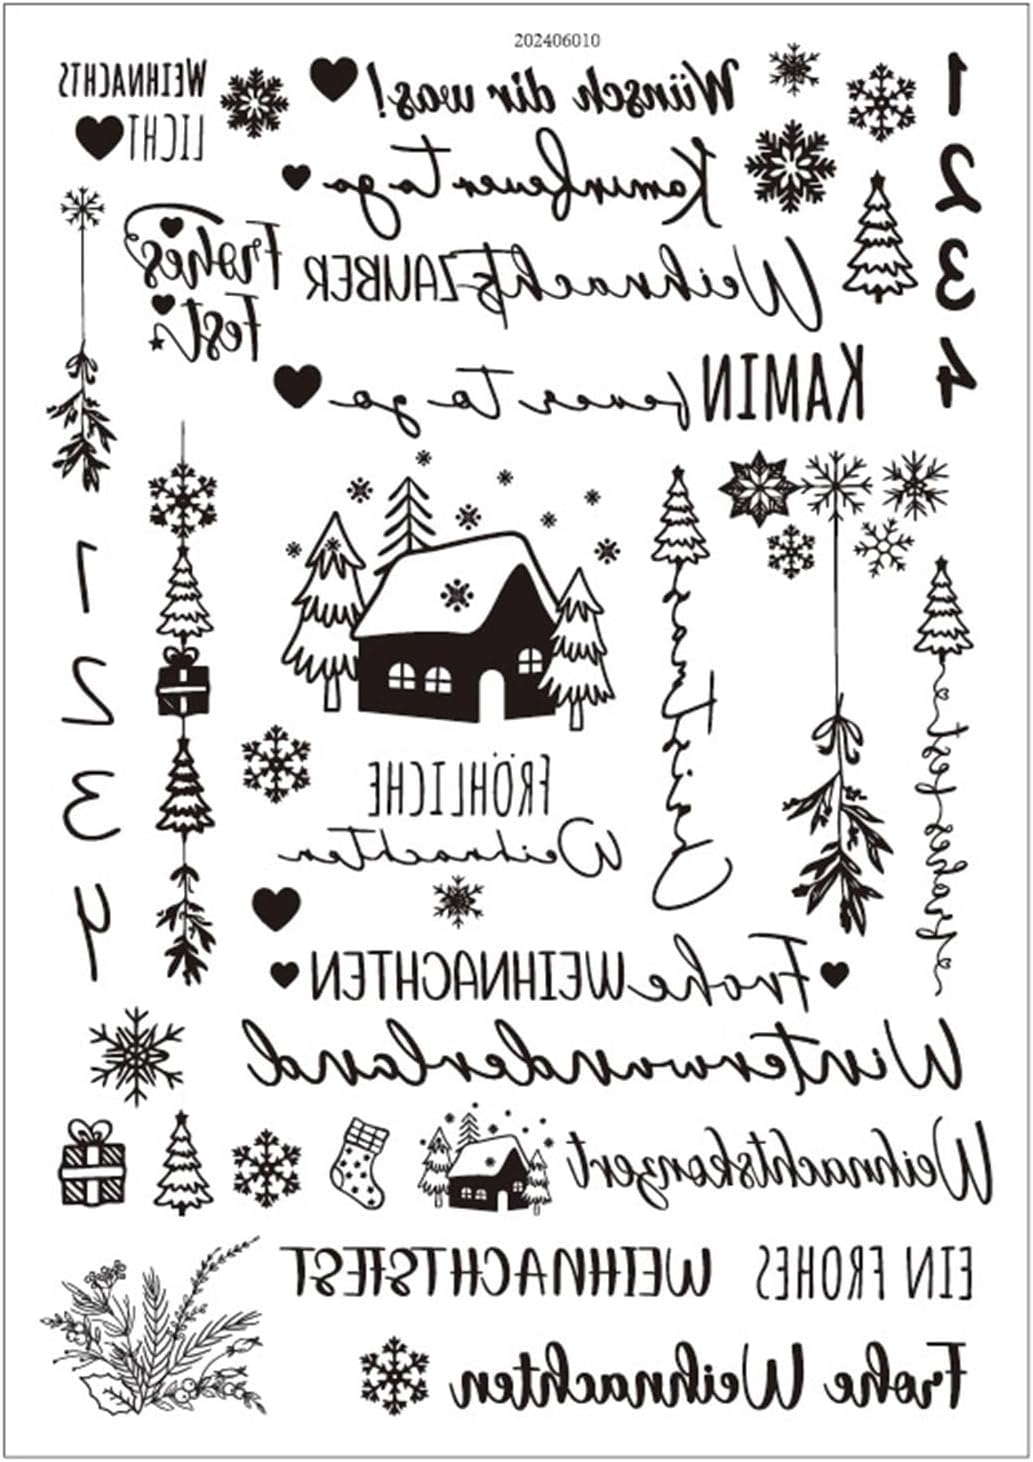 202406010
WEIHNACHTS
LICHT
Wünsch dir was!
Kaminfeuer to go
Frohes
Fest
WeihnachtsZAUBER
KAMIN feuer to go
1
2
3
4
1
2
3
4
FRÖHLICHE
Weihnachten
Frohes Fest
Frohe WEIHNACHTEN
Winterwunderland
Weihnachtskonzert
EIN FROHES WEIHNACHTSFEST
Frohe Weihnachten